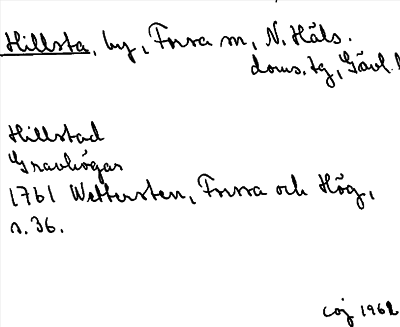 Hillsta, by, Forsa sn, N. Häls.
doms. tg, Gävl. l
Hillstad
Gravhögar
1761 Wettersten, Forssa och Hög,
s. 36.
coj 1962